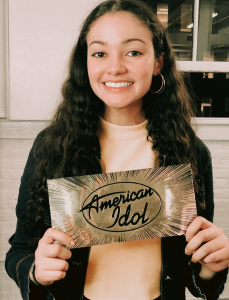 American
Idol